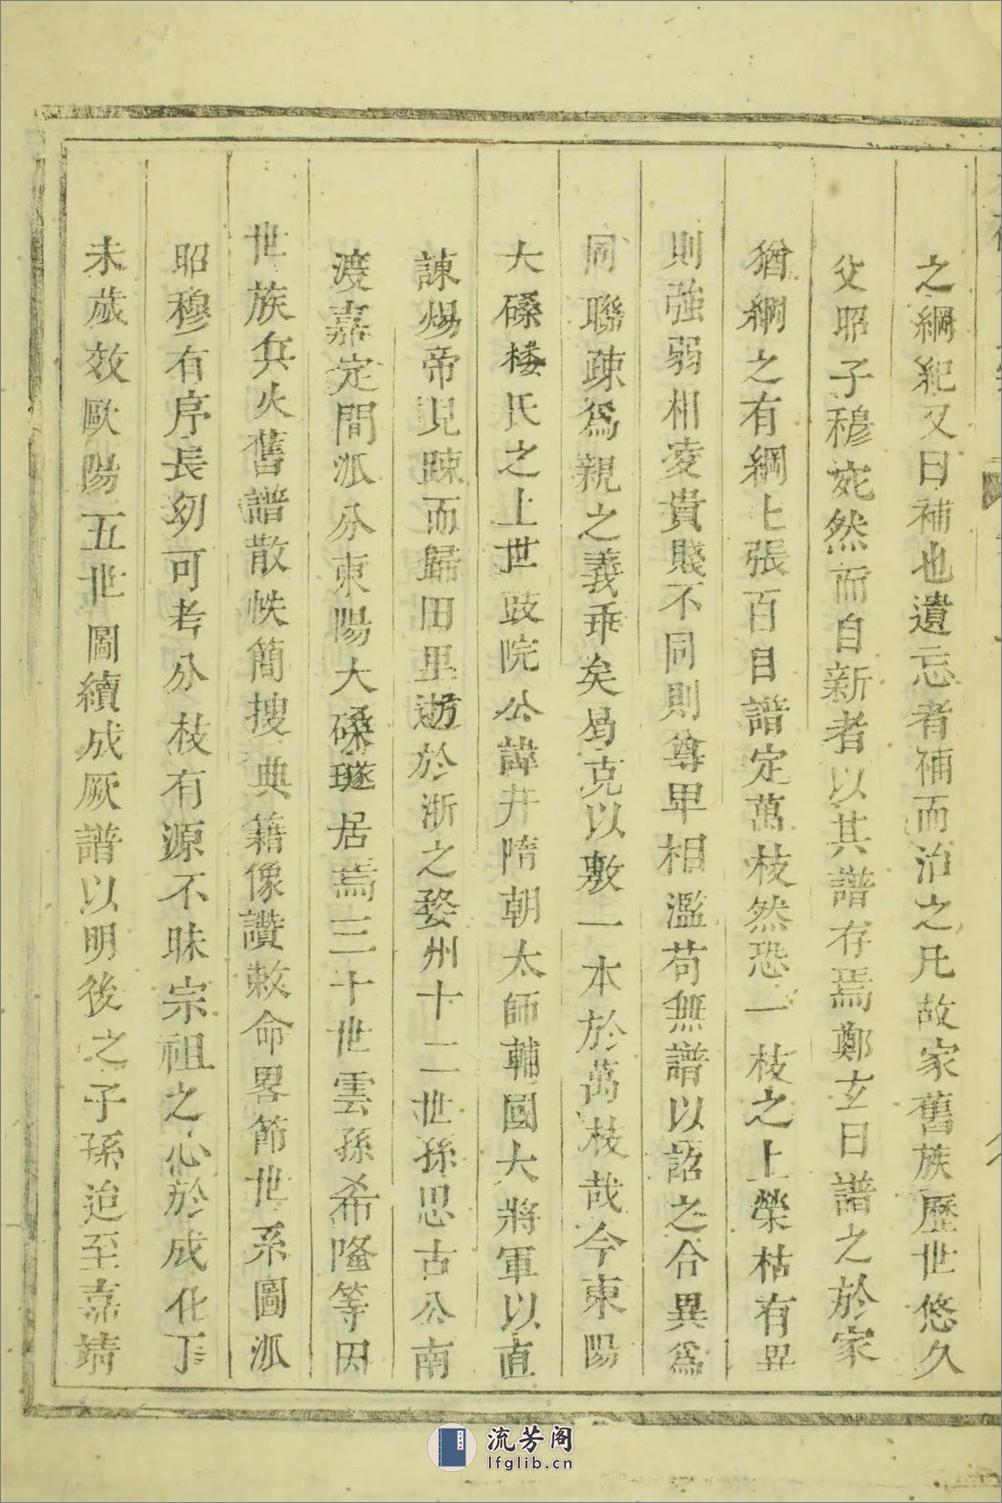 之綱紀又曰補也遺忘者補而治之凡故家舊族歷世悠久
父昭子穆宛然而自新者以其譜存焉鄭玄曰譜之於家
猶綱之有綱上張百目譜定萬枝然恐一枝之上榮枯有異
則強弱相凌貴賤不同則尊卑相濫苟無譜以詔之合異為
同聯疎為親之義乖矣曷克以敷一本於萬枝哉今東陽
大磉楼氏之上世跂院公諱井隋朝太師輔國大將軍以直
諫煬帝見踈而歸田里遯於浙之婺州十二世孫思古公南
渡嘉定間派分東陽大磉璲居焉三十世雲孫希隆等因
世族兵火舊譜散帙簡搜典籍像讚敕命畧節世系圖派
昭穆有序長幼可考分枝有源不昧宗祖之心於成化丁
未歲效歐陽五世圖續成厥譜以明後之子孫迨至嘉靖
流芳阁
lfglib.cn